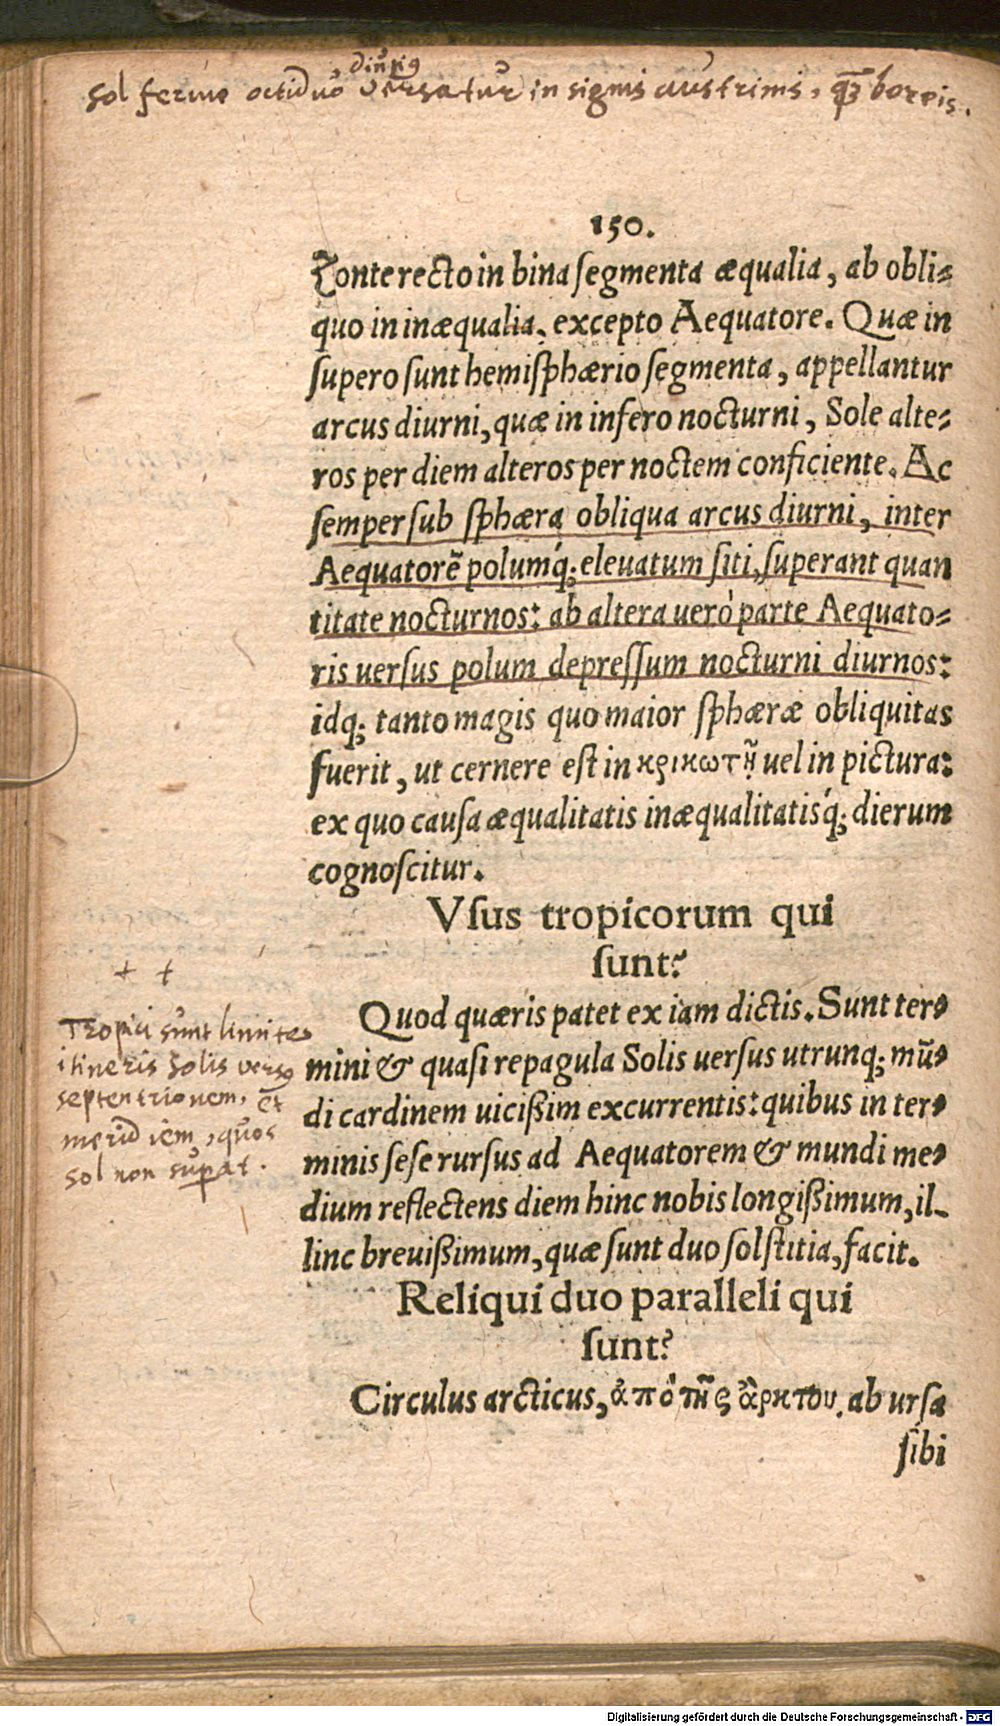 diutius
Sol ferme octiduo versatur in signis austrinis, qȝ boreis.
150.
Zonte recto in bina ſegmenta æqualia, ab obli⸗
quo in inæqualia, excepto Aequatore. Quæ in
ſupero ſunt hemiſphærio ſegmenta, appellantur
arcus diurni, quæ in infero nocturni, Sole alte⸗
ros per diem alteros per noctem conficiente. Ac
ſemper ſub ſphæra obliqua arcus diurni, inter
Aequatorẽ polumq́; eleuatum ſiti, ſuperant quan
titate nocturnos: ab altera ueró parte Aequato⸗
ris uerſus polum depreſſum nocturni diurnos:
idq; tanto magis quo maior ſphæræ obliquitas
fuerit, ut cernere eſt in κρικωτῇ uel in pictura:
ex quo cauſa æqualitatis inæqualitatisq́; dierum
cognoſcitur.
Vſus tropicorum qui
ſunt?
Quod quæris patet ex iam dictis. Sunt ter⸗
mini & quaſi repagula Solis uerſus utrunq; mũ⸗
di cardinem uicißim excurrentis: quibus in ter⸗
minis ſeſe rurſus ad Aequatorem & mundi me⸗
dium reflectens diem hinc nobis longißimum, il⸗
linc breuißimum, quæ ſunt duo ſolſtitia, facit.
Reliqui duo paralleli qui
ſunt?
Circulus arcticus, ἀπὸ τῆς ἄρκτου, ab urſa
ſibi
+ +
Tropici sunt limites
itineris Solis versꝯ
septentrionem, et
meridiem, quos
sol non suꝑat.
Digitalisierung gefördert durch die Deutsche Forschungsgemeinschaft - DFG